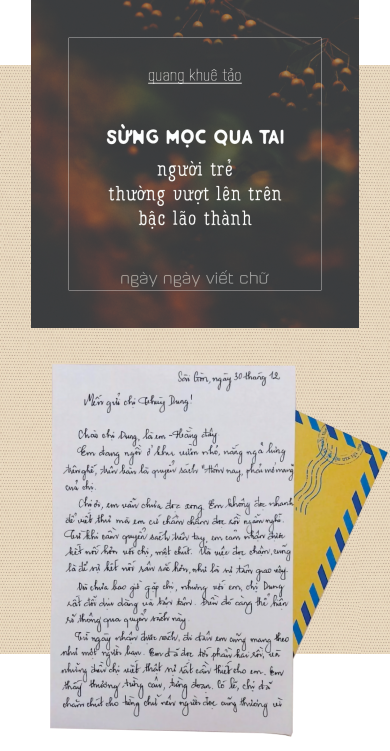 quang khuê tảo
SỪNG MỌC QUA TAI
người trẻ
thường vượt lên trên
bậc lão thành
ngày ngày viết chữ
Sài Gòn, ngày 30 tháng 12
Mến gửi chị Thùy Dung!
Chào chị Dung, là em - Hằng đây
Em đang ngồi ở khu vườn nhỏ, nắng ngả lưng
trên ghế, trên bàn là quyển sách "Hôm nay, phải mơ mang"
của chị.
Chị ơi, em vẫn chưa đọc xong. Em không đọc nhanh
để viết thư mà em cứ chầm chậm đọc rồi ngẫm nghĩ.
Từ khi cầm quyển sách trên tay, em cảm nhận được
kết nối hơn với chị, một chút. Và việc đọc chậm, cũng
là để sự kết nối sâu sắc hơn, như là sự tâm giao vậy.
Dù chưa bao giờ gặp chị, nhưng với em, chị Dung
rất đỗi dịu dàng và kín kẽ. Điều đó càng thể hiện
rõ thông qua quyển sách này.
Từ ngày nhận được sách, đi đâu em cũng mang theo
như một người bạn. Em đã đọc tới phần hai rồi, và
những điều chị viết thật sự rất cần thiết cho em. Em
thấy thương từng câu, từng đoạn. Có lẽ, chị đã
chăm chút cho từng chữ nên người đọc cũng thương và